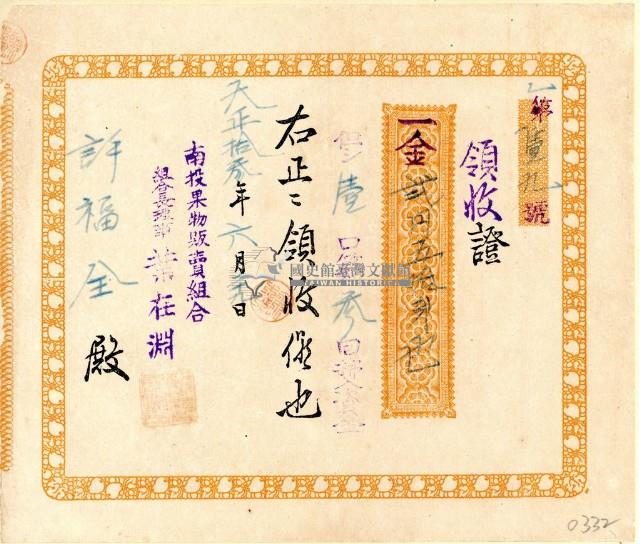 第壹九號
領收證
一金 貳円五拾弐也
但シ壹口ニ付第參回拂込金
右正ニ領收候也
大正拾參年六月 日
南投果物販賣組合
組合長理事 葉在淵
許福全 殿
國史館臺灣文獻館
TAIWAN HISTORICA
0332